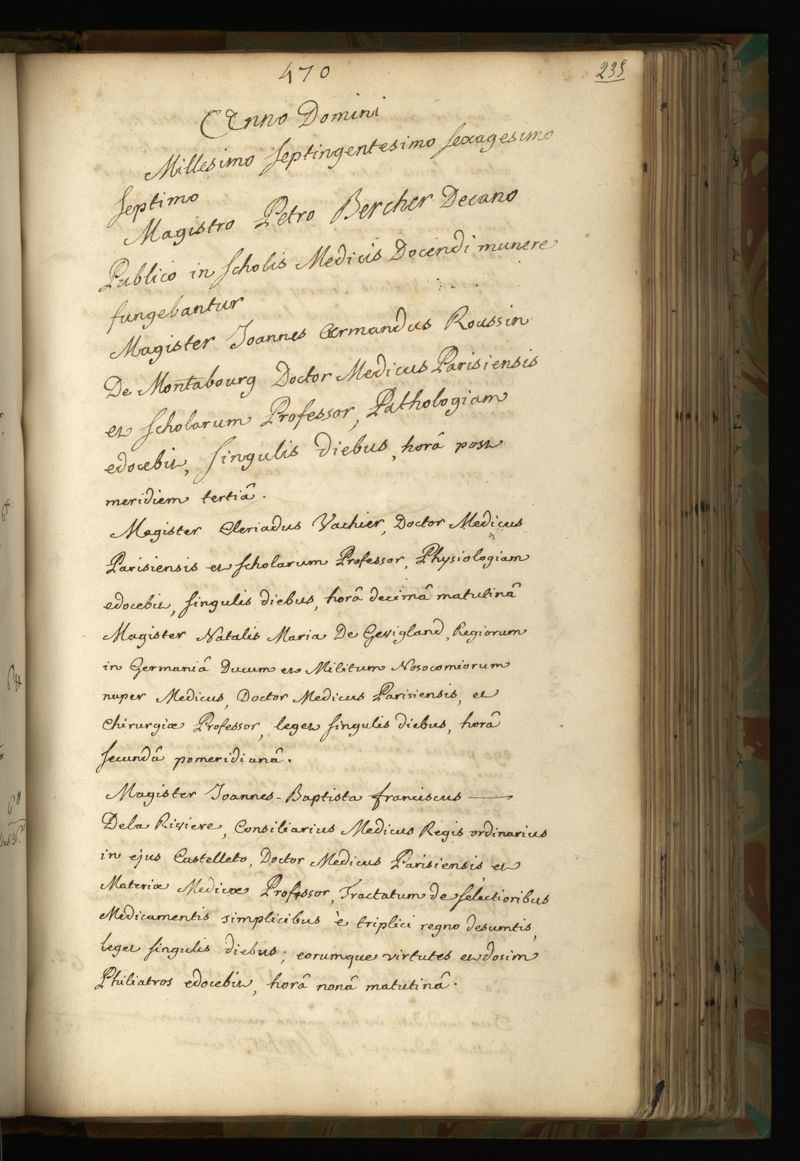 470
235
Anno Domini
Millesimo septingentesimo sexagesimo
septimo
Magistro Petro Bercher Decano
Publico in scholis Medicis Docendi munere
fungebantur
Magister Joannes Armandus Roussin
De Montabourg Doctor Medicus Parisiensis
et scholarum Professor, Pathologiam
edocebit, singulis diebus, horâ post
meridiem tertiâ.
Magister Cleriadus Vachier, Doctor Medicus
Parisiensis et scholarum Professor, Physiologiam
edocebit, singulis diebus, horâ decimâ matutinâ
Magister Natalis Maria De Gevigland, Regiorum
in Germaniâ Ducum et Militum Nosocomiorum
nuper Medicus, Doctor Medicus Parisiensis, et
Chirurgiæ Professor, leget singulis diebus, horâ
secundâ pomeridianâ.
Magister Joannes-Baptista franciscus
Dela Riviere, Consiliarius Medicus Regis ordinarius
in ejus Castelleto, Doctor Medicus Parisiensis et
Materiæ Medicæ Professor, Tractatum de selectioribus
Medicamentis simplicibus è triplici regno desumtis,
leget singulis diebus; eorumque virtutes et dosim
Philiatros edocebit, horâ nonâ matutinâ.